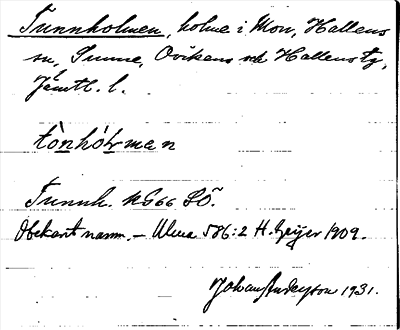 Tunnholmen, holme i Mon, Hallens
sn, Sunne, Ovikens och Hallens tg,
Jämtl. l.
tònhólmen
Tunnh. KG66 SÖ.
Obekant namn. – Ulma 586:2 H. Geijer 1909.
Johan Anderson 1931.